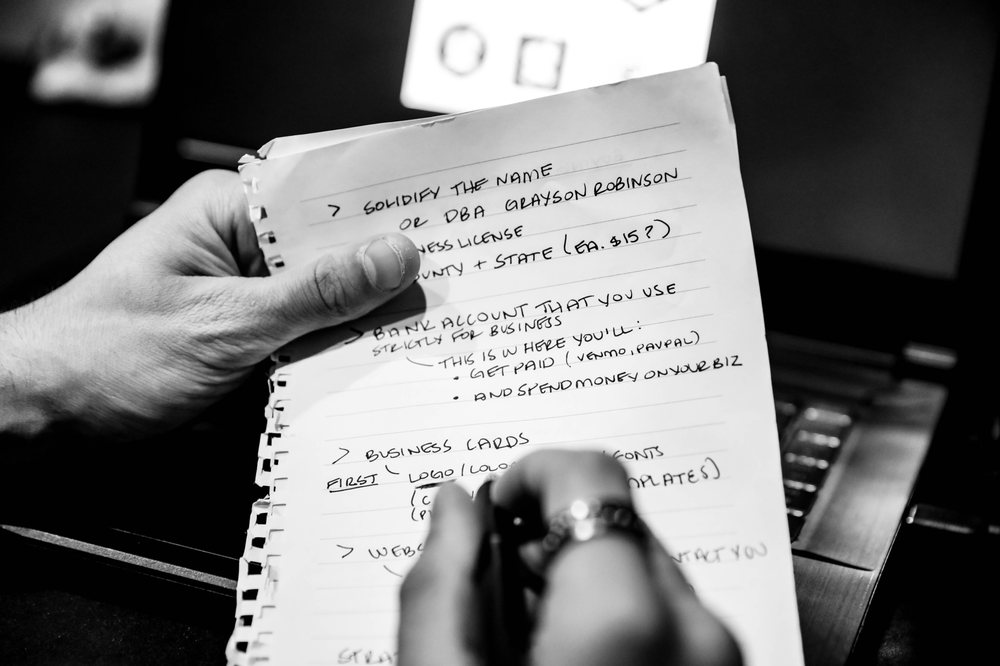 > SOLIDIFY THE NAME
OR DBA GRAYSON ROBINSON
LICENSE
+ STATE (EA. $15?)
> BANK ACCOUNT THAT YOU USE
STRICTLY FOR BUSINESS
THIS IS WHERE YOU'LL:
• GET PAID (VENMO, PAYPAL)
• AND SPEND MONEY ON YOUR BIZ
> BUSINESS CARDS
FIRST LOGO / FONTS
>
YOU